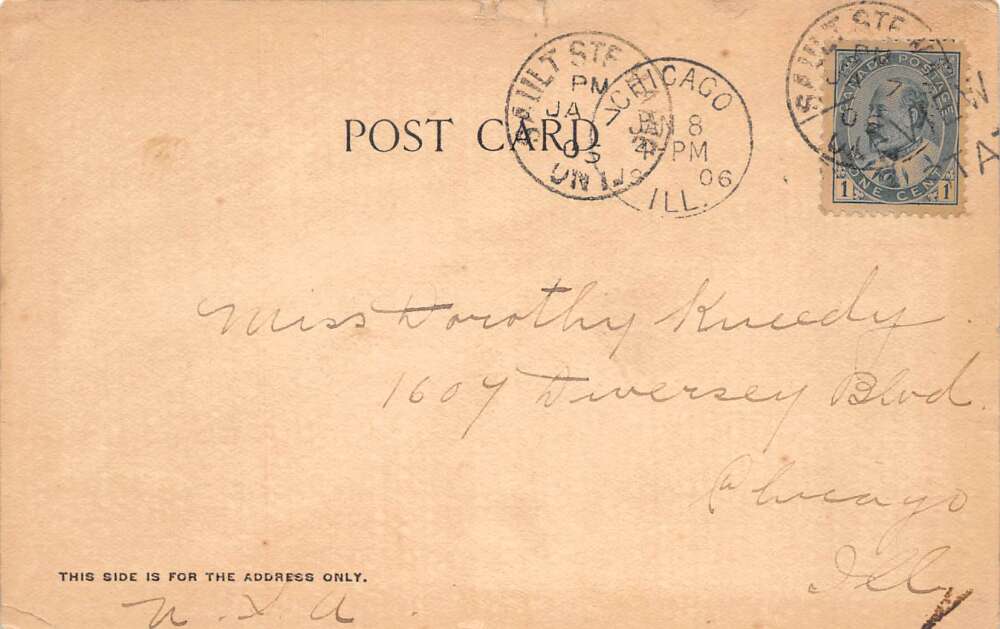 SAULT STE MARIE
PM
JA 7
ONT
CHICAGO
JAN 8
4-PM
06
ILL.
SAULT STE
PM
CANADA POSTAGE
1 ONE CENT 1
POST CARD
Miss Dorothy Kneedy
1607 Diversey Blvd.
Chicago
Ill
THIS SIDE IS FOR THE ADDRESS ONLY.
U.S.A.